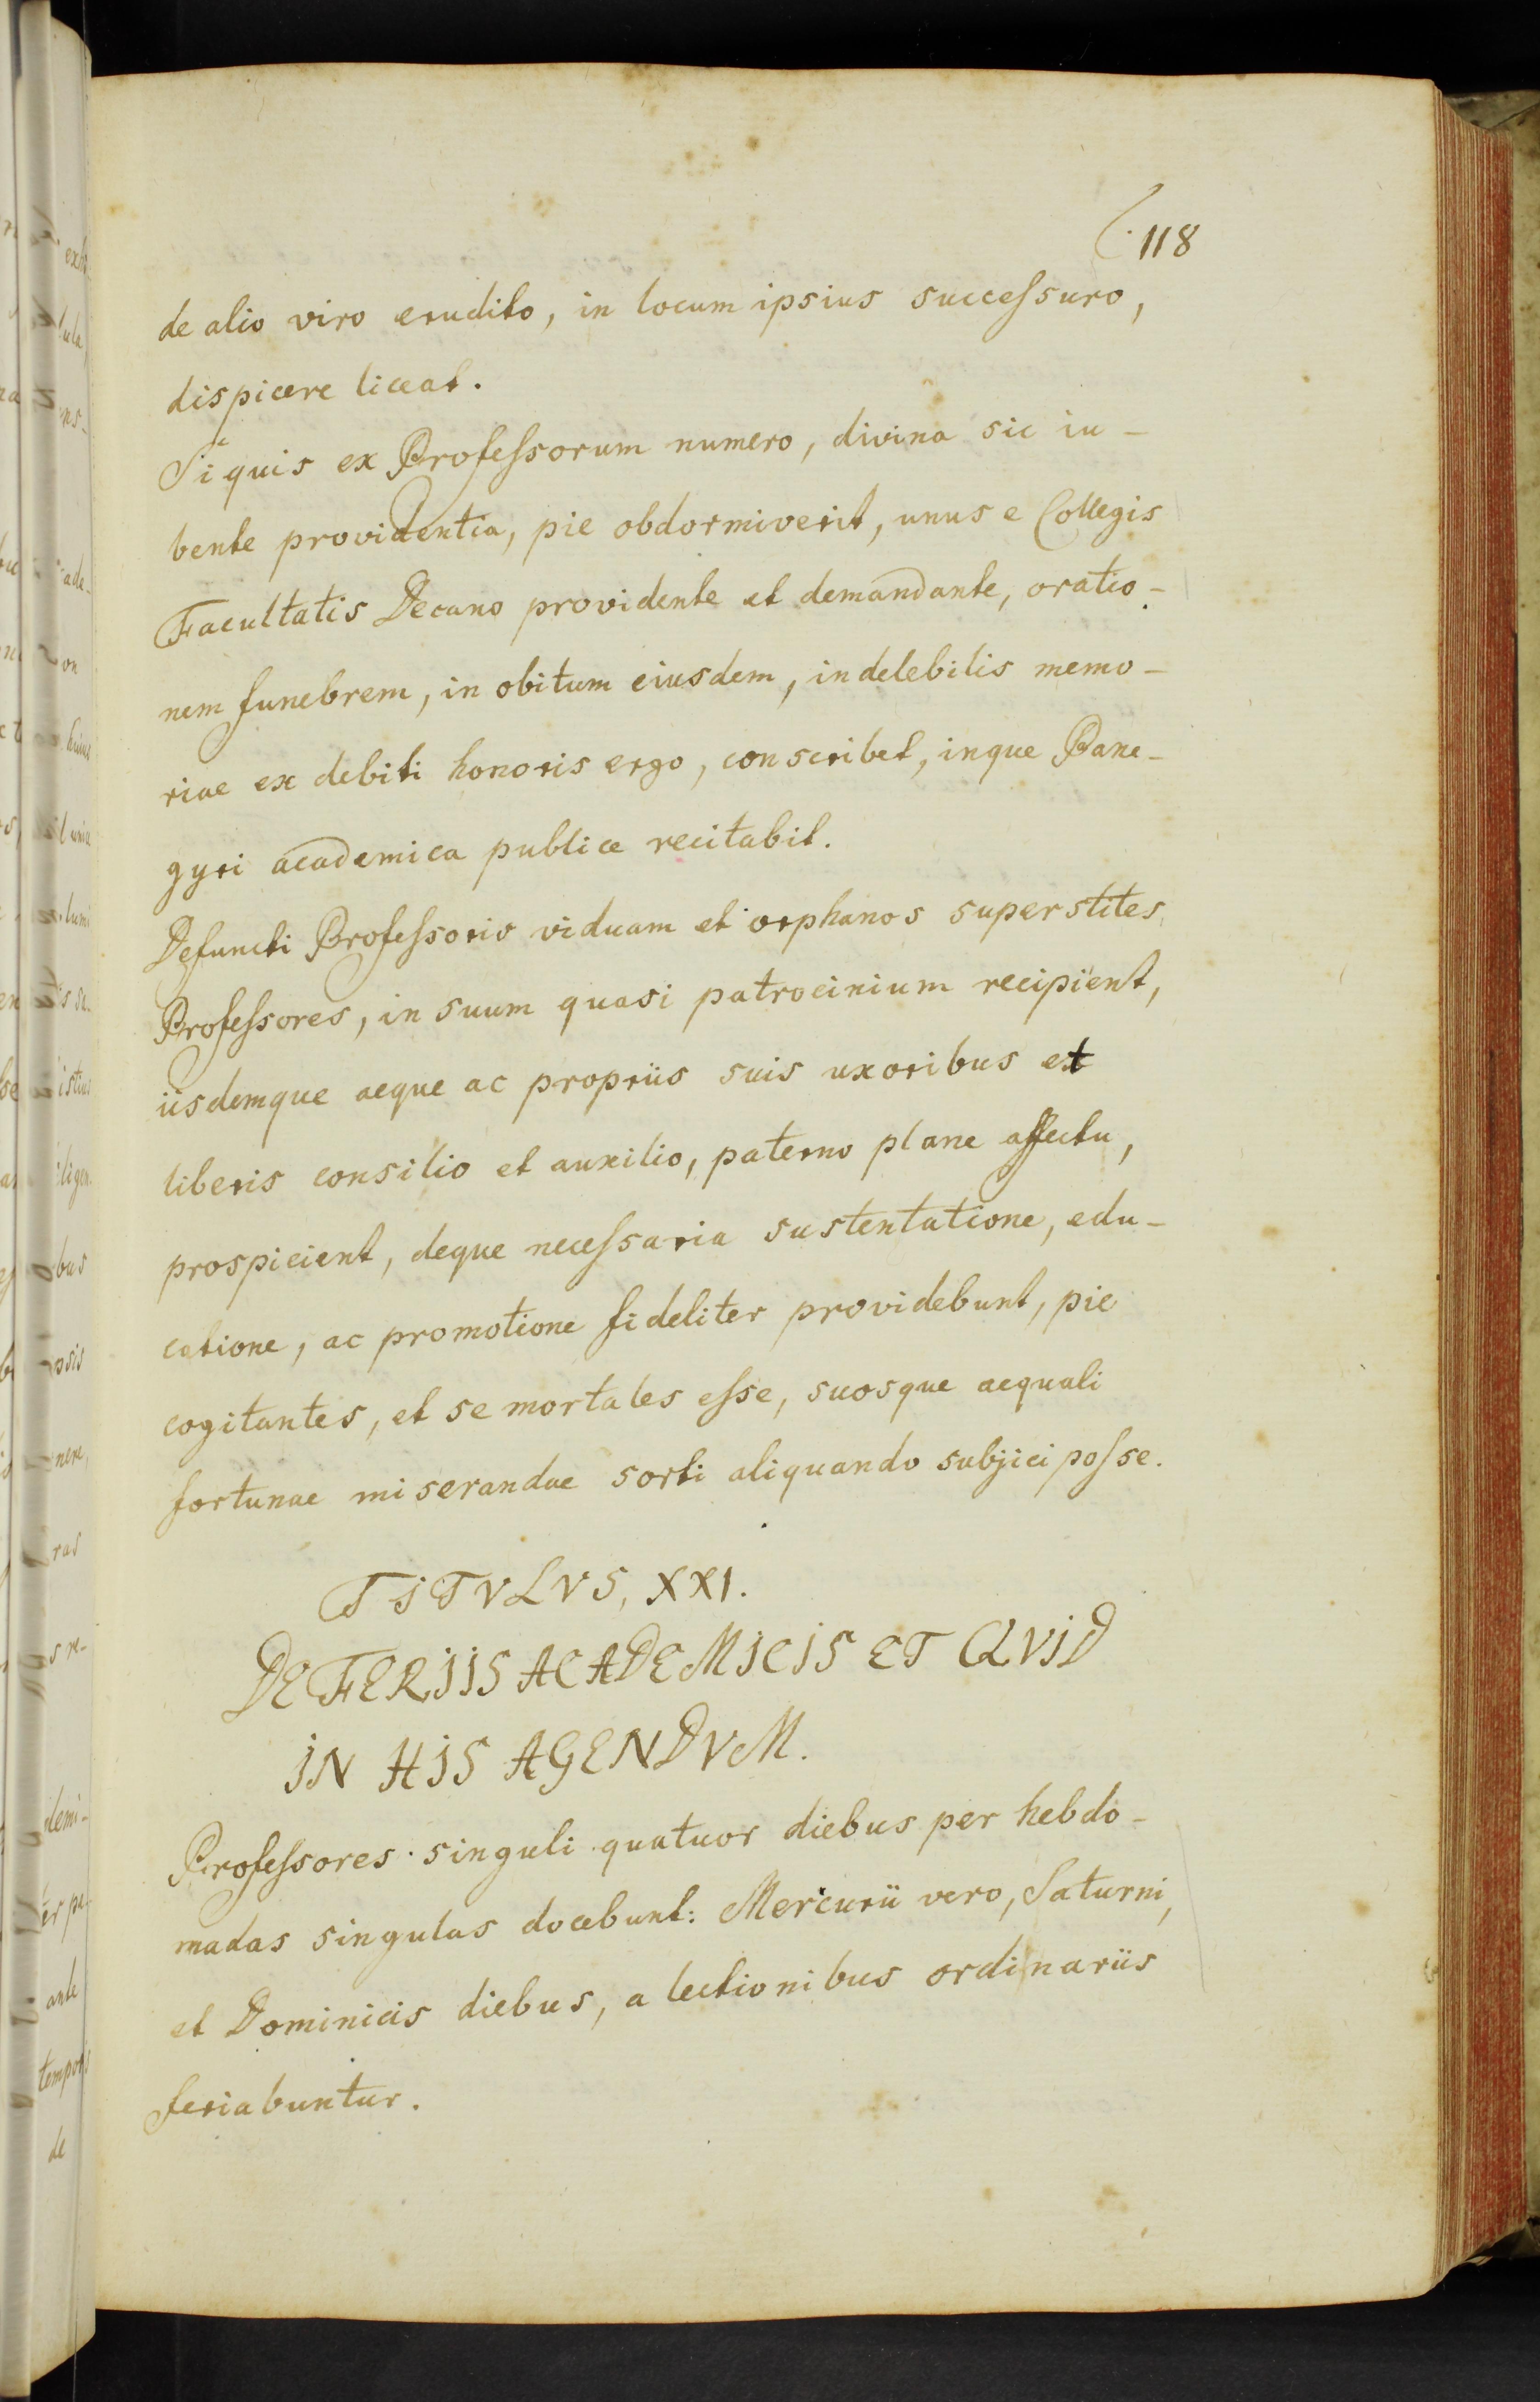 118
de alio viro erudito, in locum ipsius successuro,
dispicere liceat.
Si quis ex Professorum numero, divina sic iu-
bente providentia, pie obdormiverit, unus e Collegis
Facultatis Decano providente et demandante, oratio-
nem funebrem, in obitum eiusdem, indelebilis memo-
riae ex debiti honoris ergo, conscribet, inque Pane-
gyri academica publice recitabit.
Defuncti Professoris viduam et orphanos superstites
Professores, in suum quasi patrocinium recipient,
iisdemque aeque ac propriis suis uxoribus et
liberis consilio et auxilio, paterno plane affectu,
prospicient, deque necessaria sustentatione, edu-
catione, ac promotione fideliter providebunt, pie
cogitantes, et se mortales esse, suosque aequali
fortunae miserandae sorti aliquando subjici posse.
TITVLVS, XXI.
DE FERIIS ACADEMICIS ET QVID
IN HIS AGENDVM.
Professores singuli quatuor diebus per hebdo-
madas singulas docebunt: Mercurii vero, Saturni,
et Dominicis diebus, a lectionibus ordinariis
feriabuntur.